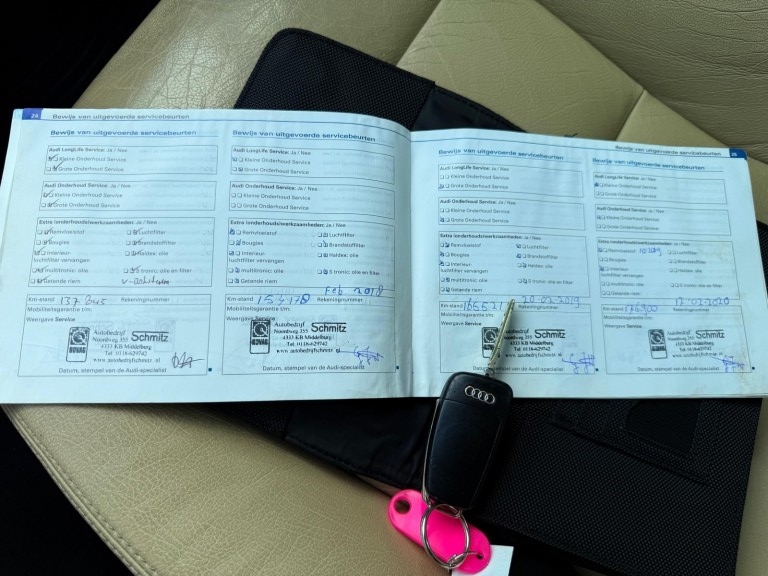 24 Bewijs van uitgevoerde servicebeurten
Bewijs van uitgevoerde servicebeurten
Audi LongLife Service: Ja / Nee
Kleine Onderhoud Service
Grote Onderhoud Service
Audi Onderhoud Service: Ja / Nee
Kleine Onderhoud Service
Grote Onderhoud Service
Extra (onderhouds)werkzaamheden: Ja / Nee
Remvloeistof Luchtfilter
Bougies Brandstoffilter
Interieur Haldex: olie
luchtfilter vervangen
multitronic: olie S tronic olie en filter
Getande riem
Km-stand 137 845 Rekeningnummer
Mobiliteitsgarantie t/m:
Weergave Service
BOVAG
Autobedrijf Schmitz
Noordweg 355
4333 KB Middelburg
Tel. 0118-629742
www.autobedrijfschmitz.nl
Datum, stempel van de Audi-specialist
Bewijs van uitgevoerde servicebeurten
Audi LongLife Service: Ja / Nee
Kleine Onderhoud Service
Grote Onderhoud Service
Audi Onderhoud Service: Ja / Nee
Kleine Onderhoud Service
Grote Onderhoud Service
Extra (onderhouds)werkzaamheden: Ja / Nee
Remvloeistof Luchtfilter
Bougies Brandstoffilter
Interieur Haldex: olie
luchtfilter vervangen
multitronic: olie S tronic olie en filter
Getande riem
Feb 2018
Km-stand Rekeningnummer
Mobiliteitsgarantie t/m:
Weergave Service
BOVAG
Autobedrijf Schmitz
Noordweg 355
4333 KB Middelburg
Tel. 0118-629742
www.autobedrijfschmitz.nl
Datum, stempel van de Audi-specialist
Bewijs van uitgevoerde servicebeurten 25
Bewijs van uitgevoerde servicebeurten
Audi LongLife Service: Ja / Nee
Kleine Onderhoud Service
Grote Onderhoud Service
Audi Onderhoud Service: Ja / Nee
Kleine Onderhoud Service
Grote Onderhoud Service
Extra (onderhouds)werkzaamheden: Ja / Nee
Remvloeistof Luchtfilter
Bougies Brandstoffilter
Interieur Haldex: olie
luchtfilter vervangen
multitronic: olie S tronic olie en filter
Getande riem
Km-stand 2019
Rekeningnummer
Mobiliteitsgarantie t/m:
Weergave Service
BOVAG
Autobedrijf Schmitz
Noordweg 355
4333 KB Middelburg
Datum, stempel van de Audi-specialist
Bewijs van uitgevoerde servicebeurten
Audi LongLife Service: Ja / Nee
Kleine Onderhoud Service
Grote Onderhoud Service
Audi Onderhoud Service: Ja / Nee
Kleine Onderhoud Service
Grote Onderhoud Service
Extra (onderhouds)werkzaamheden: Ja / Nee
Remvloeistof Luchtfilter
Bougies Brandstoffilter
Interieur Haldex: olie
luchtfilter vervangen
multitronic: olie S tronic olie en filter
Getande riem
Km-stand 2020
Rekeningnummer
Mobiliteitsgarantie t/m:
Weergave Service
BOVAG
Autobedrijf Schmitz
Noordweg 355
4333 KB Middelburg
Tel. 0118-629742
www.autobedrijfschmitz.nl
Datum, stempel van de Audi-specialist